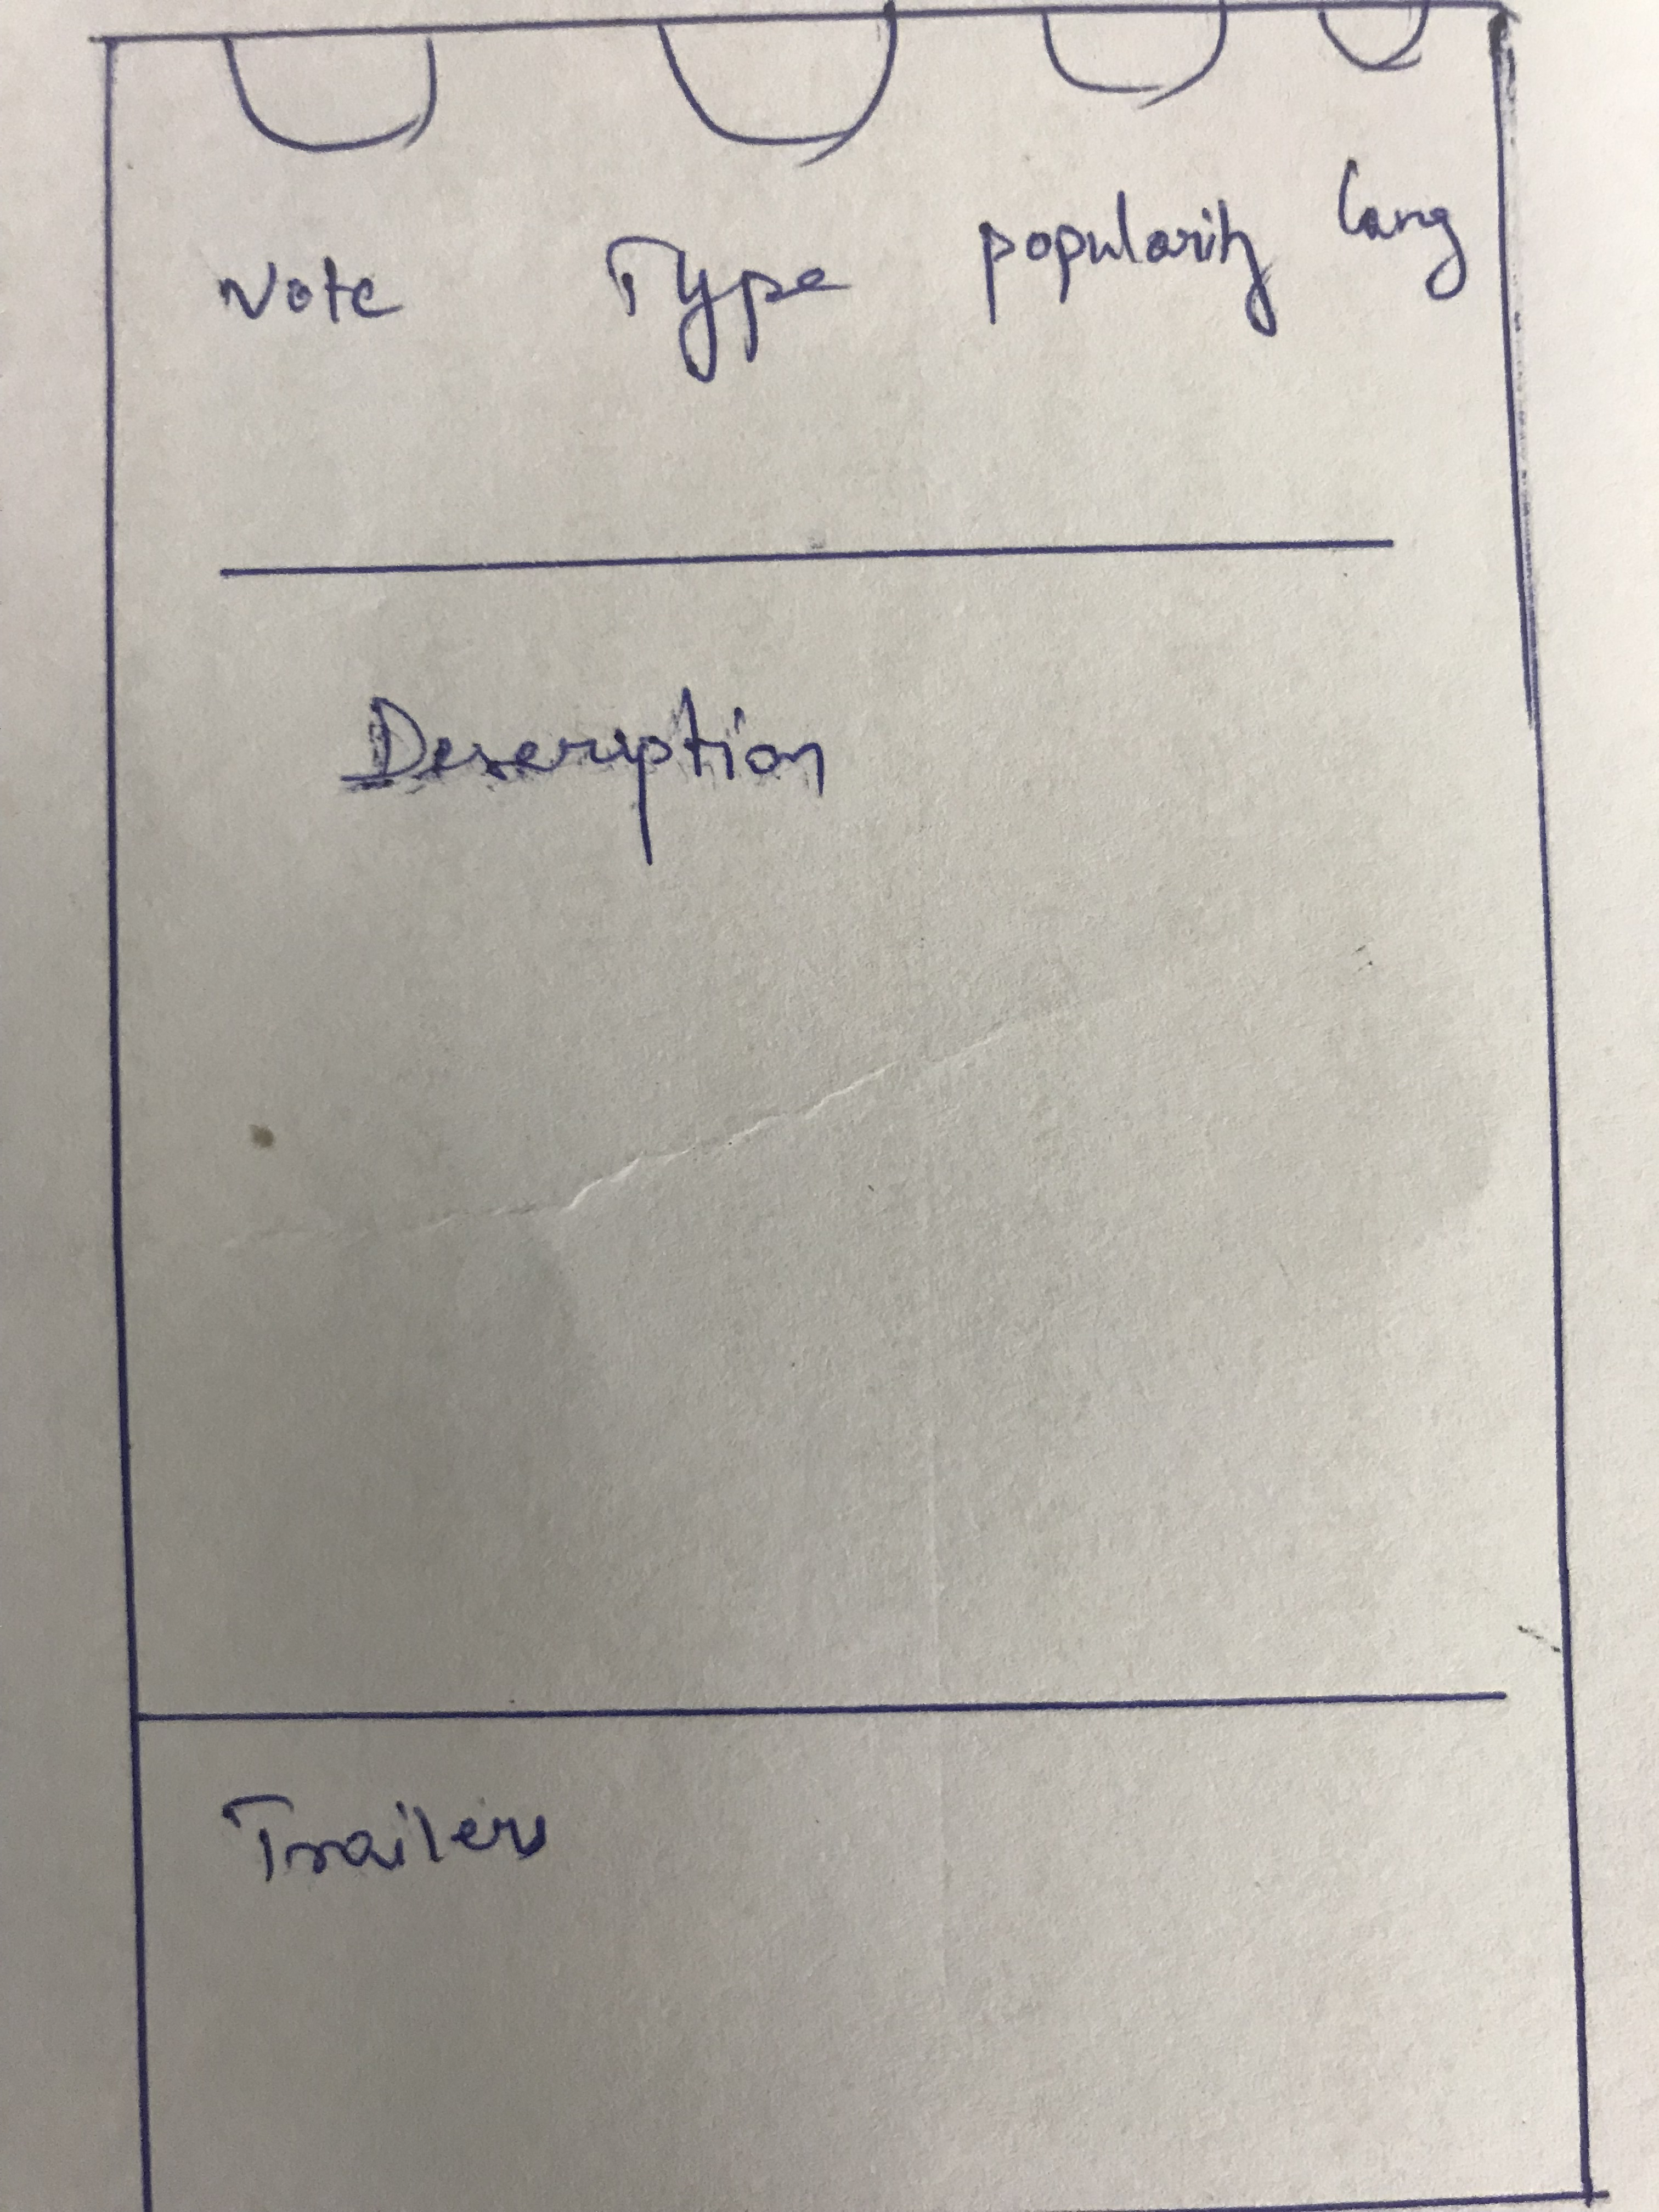 Vote Type popularity lang
Description
Trailers